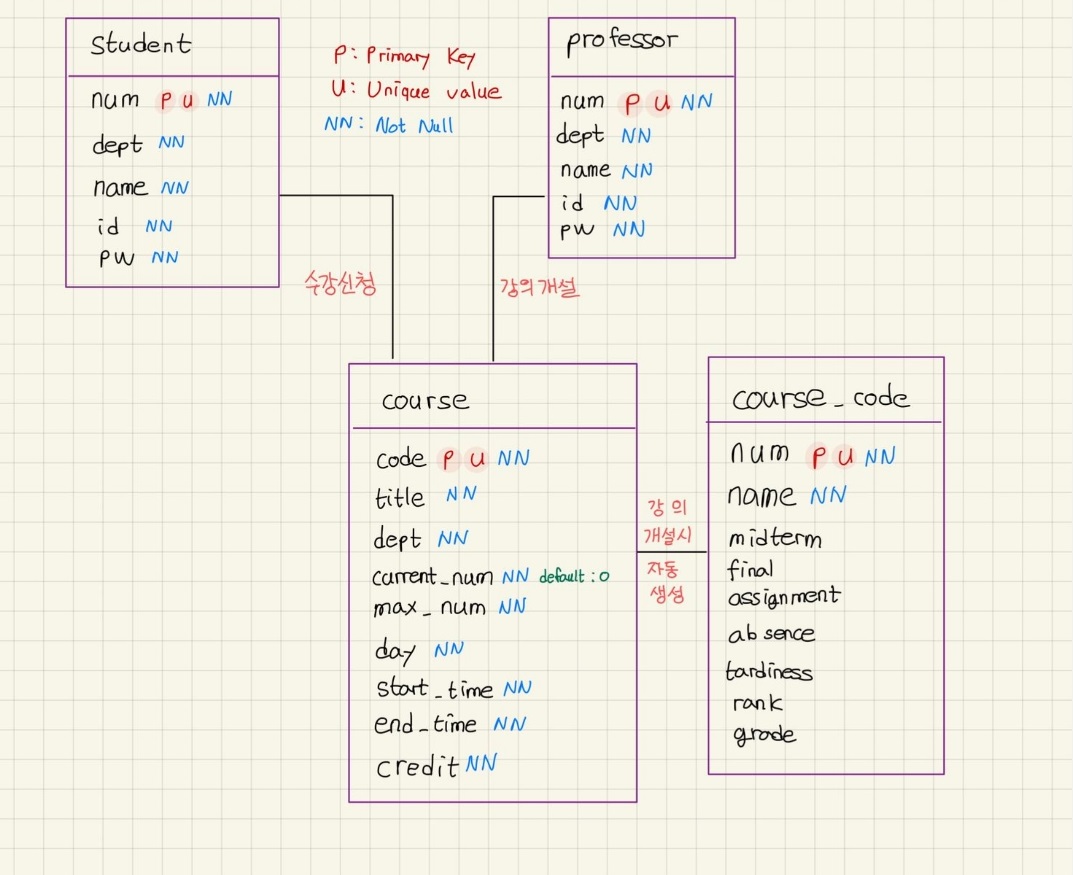 student
num P U NN
dept NN
name NN
id NN
pw NN
P: Primary Key
U: Unique value
NN: Not Null
professor
num P U NN
dept NN
name NN
id NN
pw NN
수강신청
강의개설
course
code P U NN
title NN
dept NN
current_num NN default : 0
max_num NN
day NN
start_time NN
end_time NN
credit NN
강의
개설시
자동
생성
course_code
num P U NN
name NN
midterm
final
assignment
absence
tardiness
rank
grade